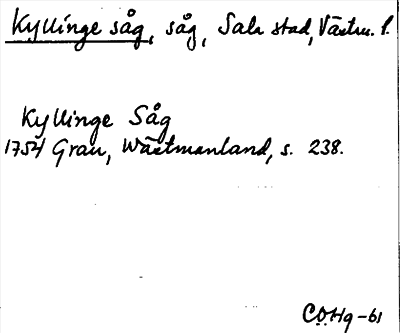 Kyllinge såg, såg, Sala stad, Västm. l.
Kyllinge Såg
1754 Grau, Wästmanland, s. 238.
COHg-61